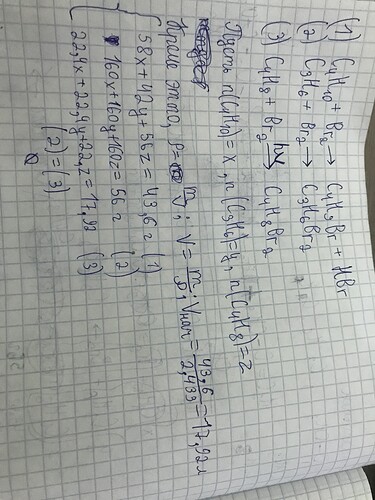 (1) C₄H₁₀ + Br₂ → C₄H₉Br + HBr
(2) C₃H₆ + Br₂ → C₃H₆Br₂
(3) C₄H₈ + Br₂ →hν C₄H₈Br₂
Пусть n(C₄H₁₀) = x, n(C₃H₆) = y, n(C₄H₈) = z
Кроме этого, ρ = m/V; V = m/ρ; Vнач = 43,6/2,433 = 17,92л
58x + 42y + 56z = 43,6 г (1)
160x + 160y + 160z = 56 г (2)
22,4x + 22,4y + 22,z = 17,92 (3)
(2) = (3)